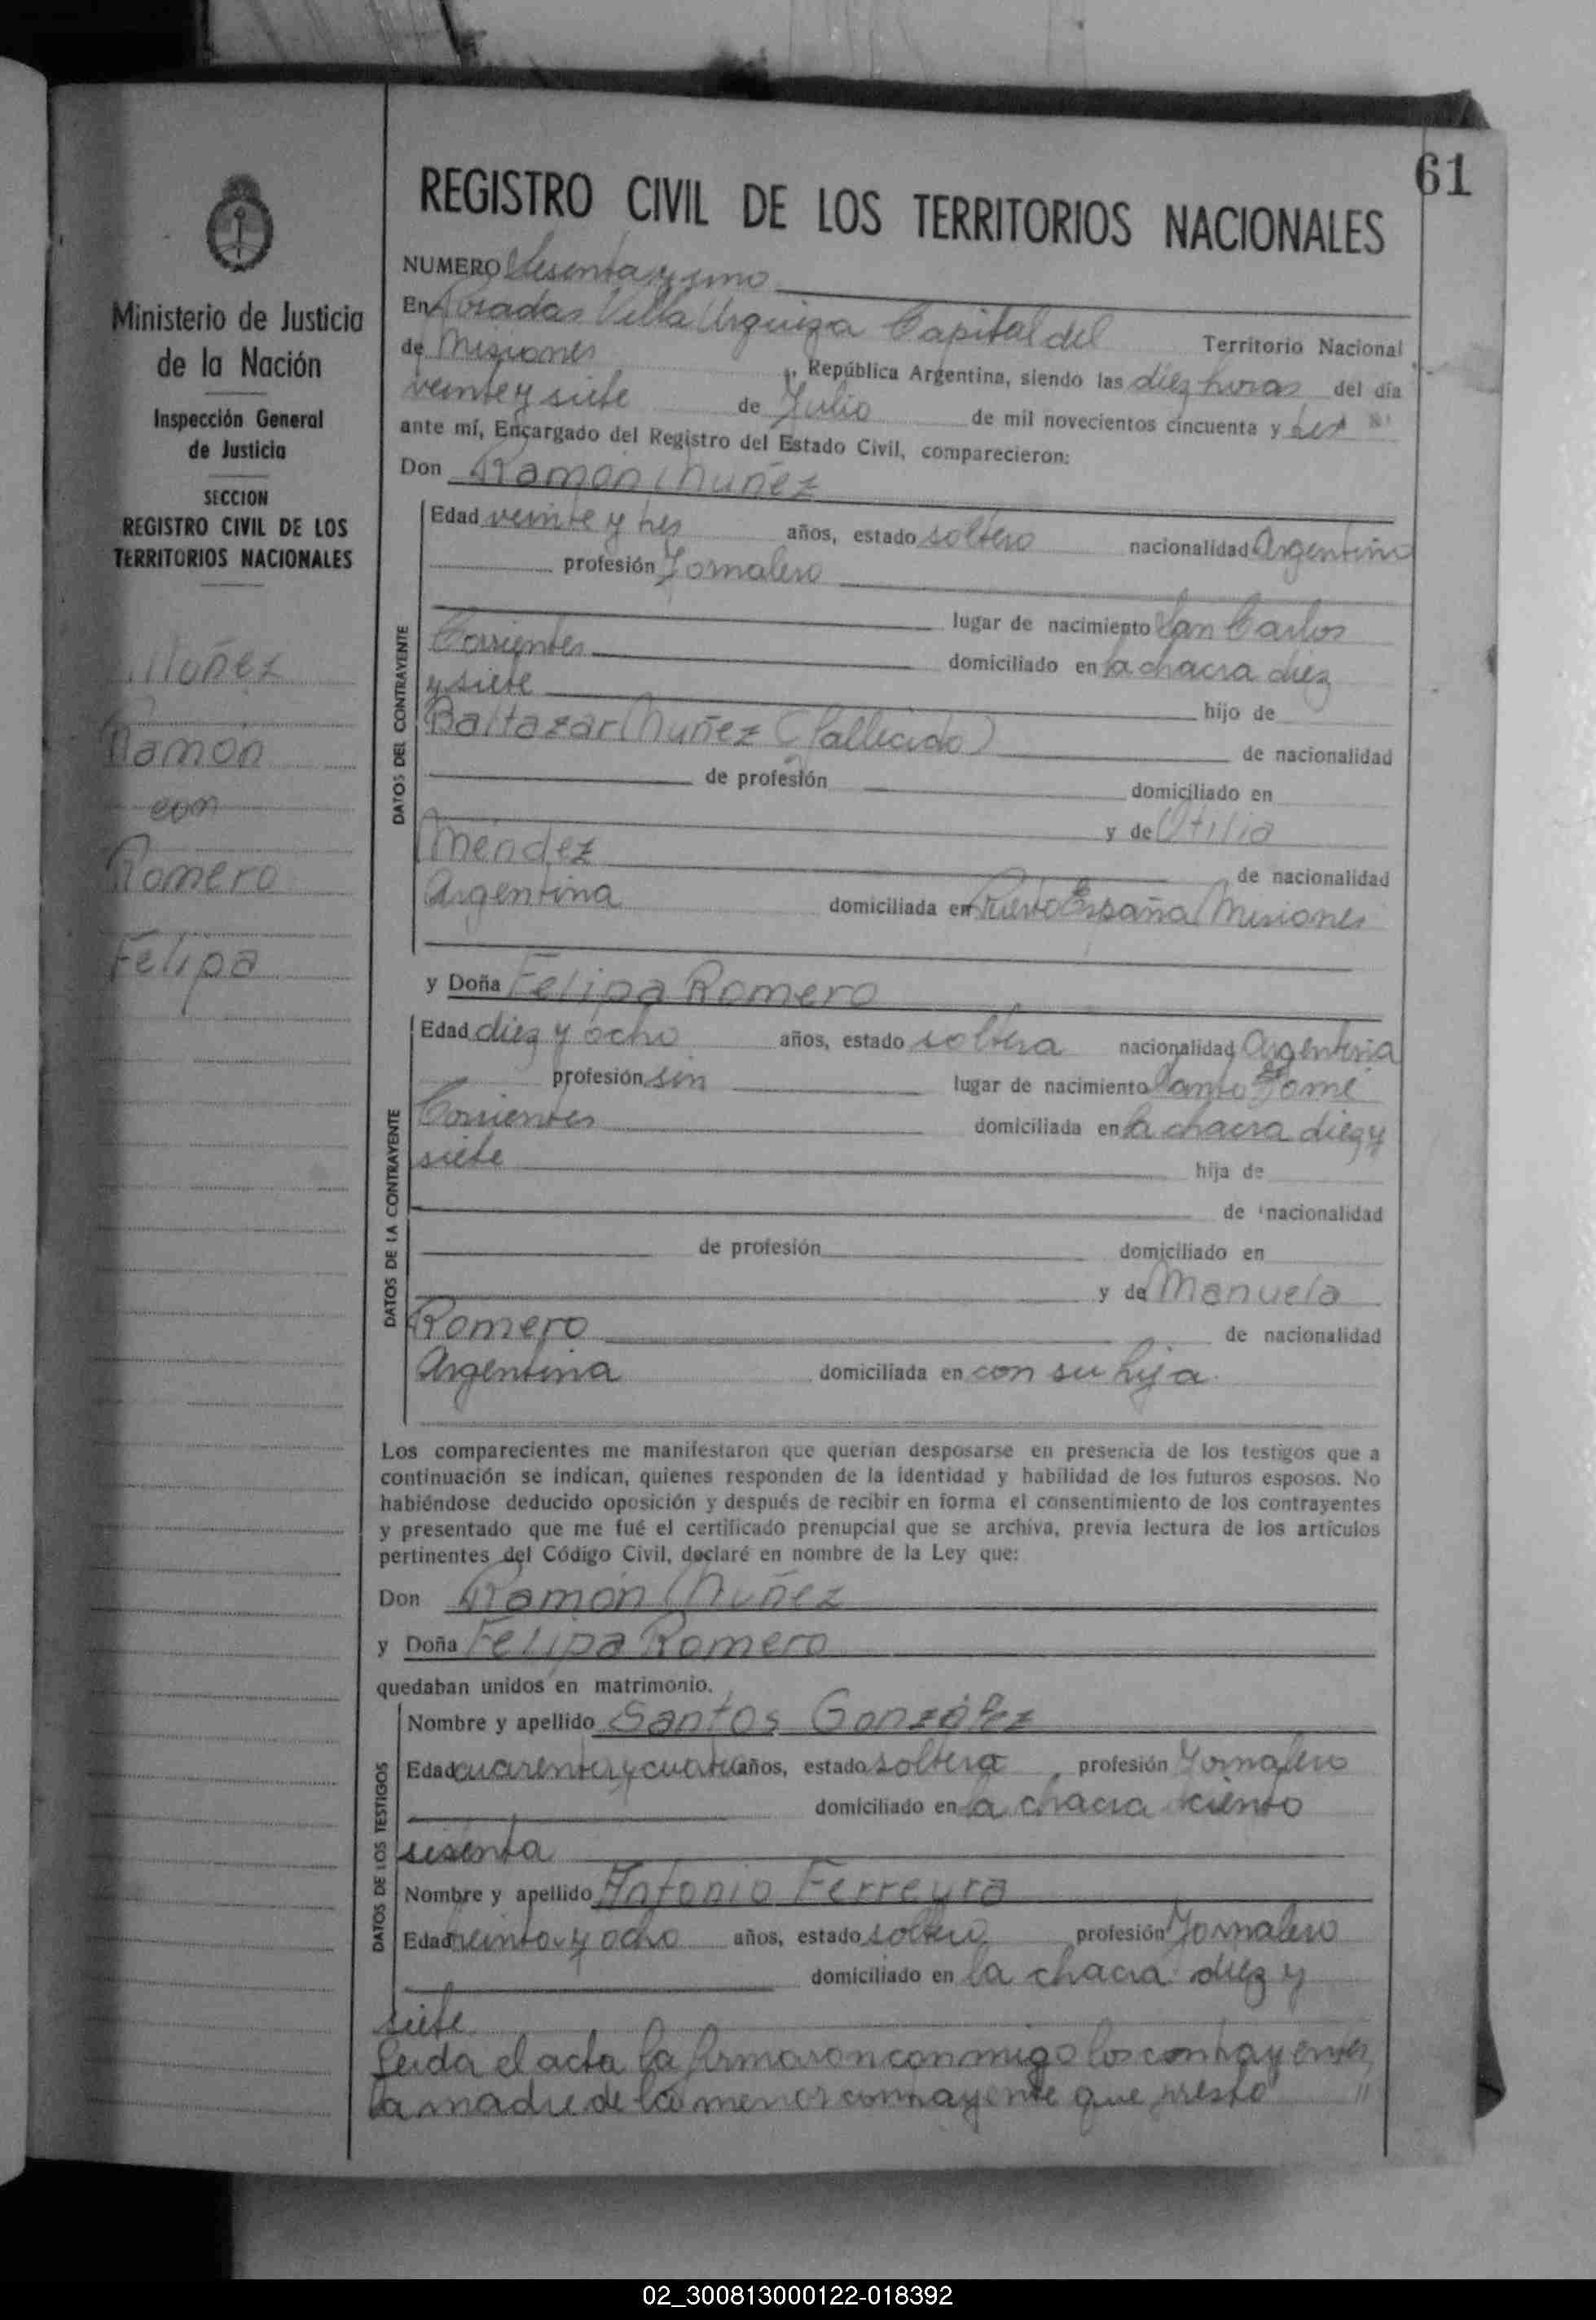 61
REGISTRO CIVIL DE LOS TERRITORIOS NACIONALES
Ministerio de Justicia
de la Nación
Inspección General
de Justicia
SECCION
REGISTRO CIVIL DE LOS
TERRITORIOS NACIONALES
Nuñez
Ramón
con
Romero
Felipa
NUMERO Sesenta y uno
En Posadas Villa Urquiza Capital del Territorio Nacional
de Misiones, República Argentina, siendo las diez horas del día
veinte y siete de Julio de mil novecientos cincuenta y tres
ante mí, Encargado del Registro del Estado Civil, comparecieron:
Don Ramón Nuñez
DATOS DEL CONTRAYENTE
Edad veinte y tres años, estado soltero nacionalidad Argentino
profesión Jornalero
lugar de nacimiento San Carlos
Corrientes domiciliado en la chacra diez
y siete hijo de
Baltazar Nuñez (fallecido) de nacionalidad
de profesión domiciliado en
y de Otilia
Méndez de nacionalidad
Argentina domiciliada en Puerto España Misiones
y Doña Felipa Romero
DATOS DE LA CONTRAYENTE
Edad diez y ocho años, estado soltera nacionalidad Argentina
profesión sin lugar de nacimiento Santo Tomé
Corrientes domiciliada en la chacra diez y
siete hija de
de nacionalidad
de profesión domiciliado en
y de Manuela
Romero de nacionalidad
Argentina domiciliada en con su hija
Los comparecientes me manifestaron que querían desposarse en presencia de los testigos que a
continuación se indican, quienes responden de la identidad y habilidad de los futuros esposos. No
habiéndose deducido oposición y después de recibir en forma el consentimiento de los contrayentes
y presentado que me fué el certificado prenupcial que se archiva, previa lectura de los artículos
pertinentes del Código Civil, declaré en nombre de la Ley que:
Don Ramón Nuñez
y Doña Felipa Romero
quedaban unidos en matrimonio.
DATOS DE LOS TESTIGOS
Nombre y apellido Santos González
Edad cuarenta y cuatro años, estado soltera profesión Jornalero
domiciliado en la chacra ciento
sesenta
Nombre y apellido Antonio Ferreyra
Edad treinta y ocho años, estado soltero profesión Jornalero
domiciliado en la chacra diez y
siete
Leida el acta la firmaron conmigo los contrayentes,
la madre de la menor contrayente que presto "
02_300813000122-018392